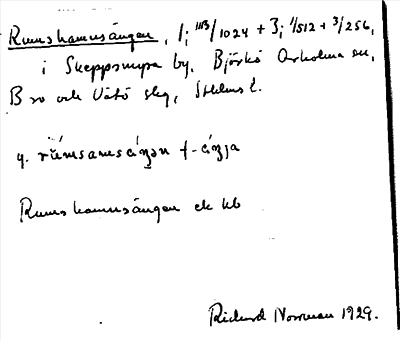 Rumshamnsängen, 1; 1113/1024 + 3; 1/512 + 3/256,
i Skeppsmyra by, Björkö Arholma sn,
Bro och Vätö slg, Sthlms l.
Rumshamnsängen ek kb
Rickard Norrman 1929.